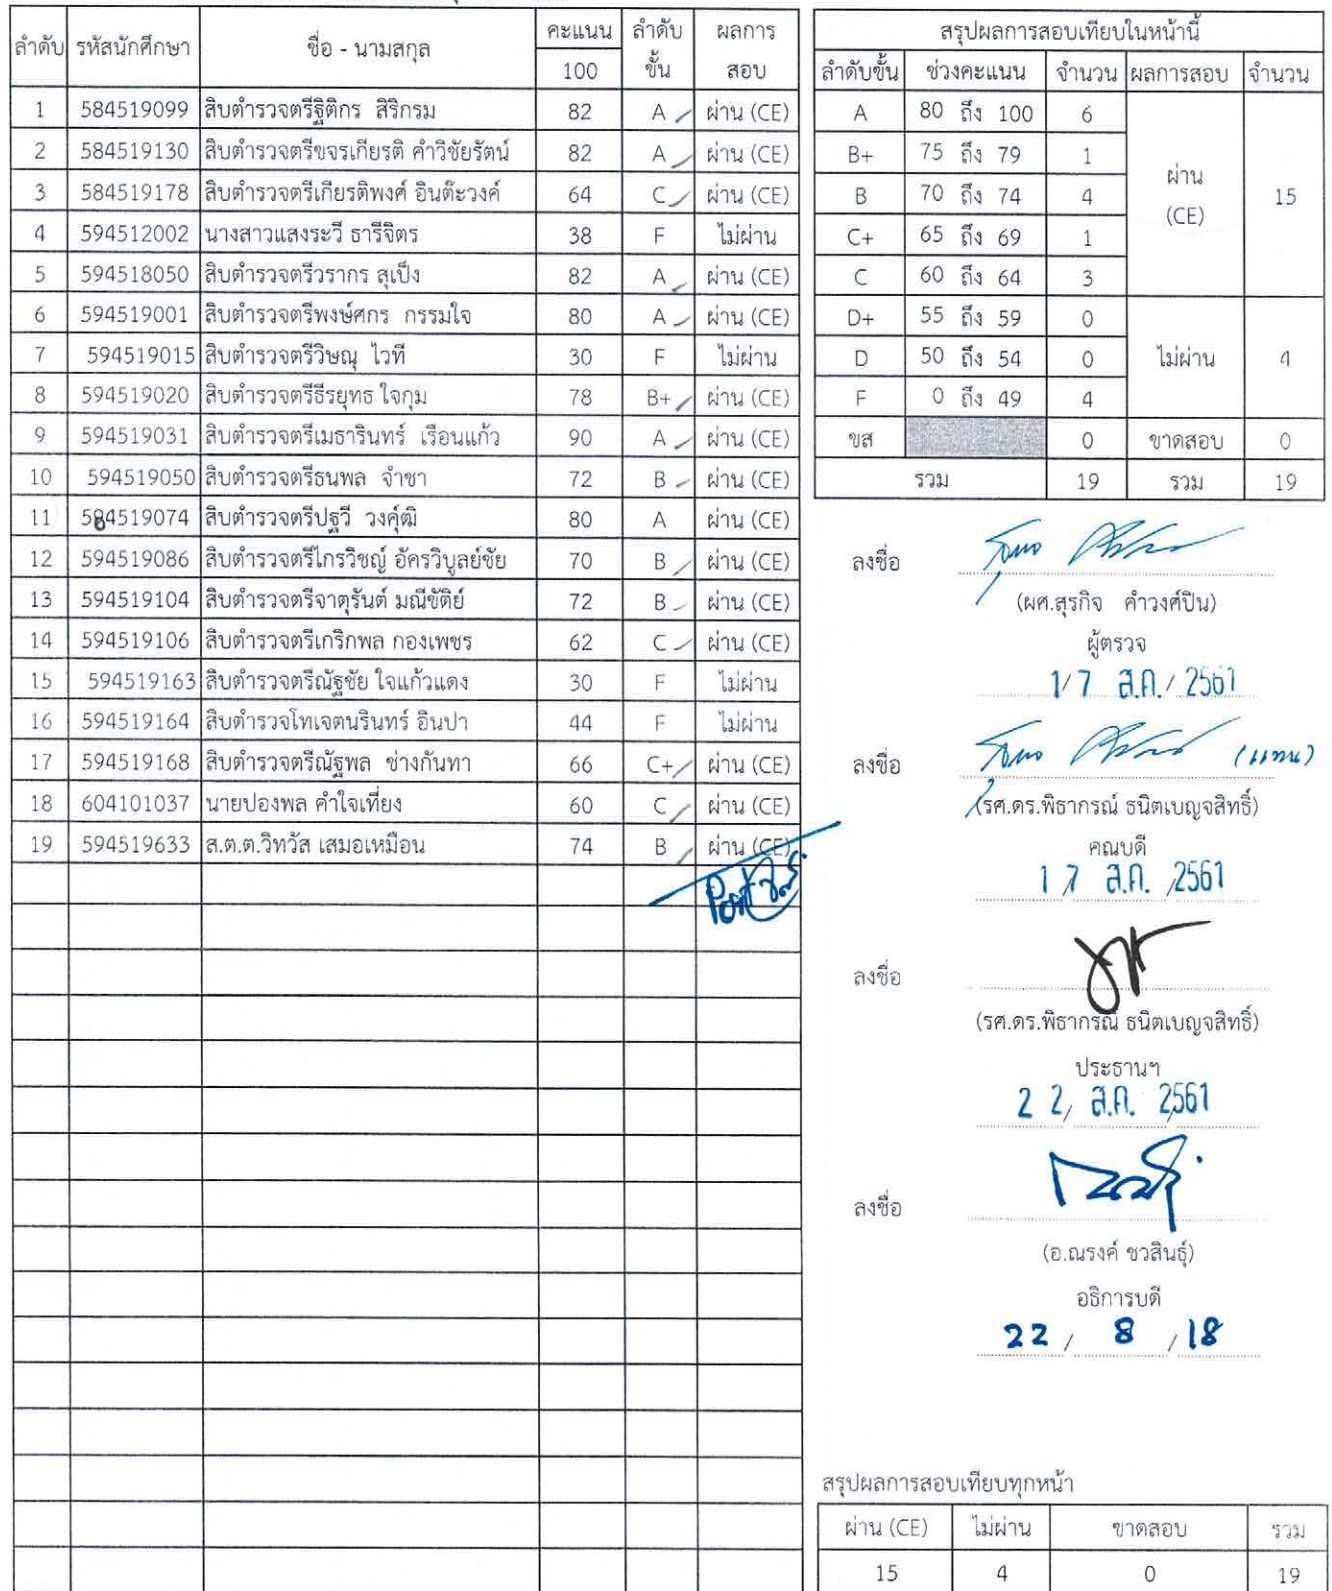 ลำดับ รหัสนักศึกษา ชื่อ - นามสกุล คะแนน ลำดับ ผลการ
100 ชั้น สอบ
1 584519099 สิบตำรวจตรีฐิติกร สิริกรม 82 A ผ่าน (CE)
2 584519130 สิบตำรวจตรีขจรเกียรติ คำวิชัยรัตน์ 82 A ผ่าน (CE)
3 584519178 สิบตำรวจตรีเกียรติพงศ์ อินต๊ะวงค์ 64 C ผ่าน (CE)
4 594512002 นางสาวแสงระวี ธารีจิตร 38 F ไม่ผ่าน
5 594518050 สิบตำรวจตรีวรากร สุเป็ง 82 A ผ่าน (CE)
6 594519001 สิบตำรวจตรีพงษ์ศกร กรรมใจ 80 A ผ่าน (CE)
7 594519015 สิบตำรวจตรีวิษณุ ไวที 30 F ไม่ผ่าน
8 594519020 สิบตำรวจตรีธีรยุทธ ใจกุม 78 B+ ผ่าน (CE)
9 594519031 สิบตำรวจตรีเมธารินทร์ เรือนแก้ว 90 A ผ่าน (CE)
10 594519050 สิบตำรวจตรีธนพล จำชา 72 B ผ่าน (CE)
11 584519074 สิบตำรวจตรีปฐวี วงค์ุฒิ 80 A ผ่าน (CE)
12 594519086 สิบตำรวจตรีไกรวิชญ์ อัครวิบูลย์ชัย 70 B ผ่าน (CE)
13 594519104 สิบตำรวจตรีจาตุรันต์ มณีขัติย์ 72 B ผ่าน (CE)
14 594519106 สิบตำรวจตรีเกริกพล กองเพชร 62 C ผ่าน (CE)
15 594519163 สิบตำรวจตรีณัฐชัย ใจแก้วแดง 30 F ไม่ผ่าน
16 594519164 สิบตำรวจโทเจตนรินทร์ อินปา 44 F ไม่ผ่าน
17 594519168 สิบตำรวจตรีณัฐพล ช่างกันทา 66 C+ ผ่าน (CE)
18 604101037 นายปองพล คำใจเที่ยง 60 C ผ่าน (CE)
19 594519633 ส.ต.ต.วิทวัส เสมอเหมือน 74 B ผ่าน (CE)
สรุปผลการสอบเทียบในหน้านี้
ลำดับขั้น ช่วงคะแนน จำนวน ผลการสอบ จำนวน
A 80 ถึง 100 6
B+ 75 ถึง 79 1 ผ่าน
B 70 ถึง 74 4 (CE) 15
C+ 65 ถึง 69 1
C 60 ถึง 64 3
D+ 55 ถึง 59 0
D 50 ถึง 54 0 ไม่ผ่าน 4
F 0 ถึง 49 4
ขส 0 ขาดสอบ 0
รวม 19 รวม 19
ลงชื่อ
(ผศ.สุรกิจ คำวงศ์ปิน)
ผู้ตรวจ
1/7 ส.ค./ 2561
ลงชื่อ (แทน)
(รศ.ดร.พิธากรณ์ ธนิตเบญจสิทธิ์)
คณบดี
1 7 ส.ค. /2561
ลงชื่อ
(รศ.ดร.พิธากรณ์ ธนิตเบญจสิทธิ์)
ประธานฯ
2 2/ ส.ค. /2561
ลงชื่อ
(อ.ณรงค์ ชวสินธุ์)
อธิการบดี
22 / 8 / 18
สรุปผลการสอบเทียบทุกหน้า
ผ่าน (CE) ไม่ผ่าน ขาดสอบ รวม
15 4 0 19